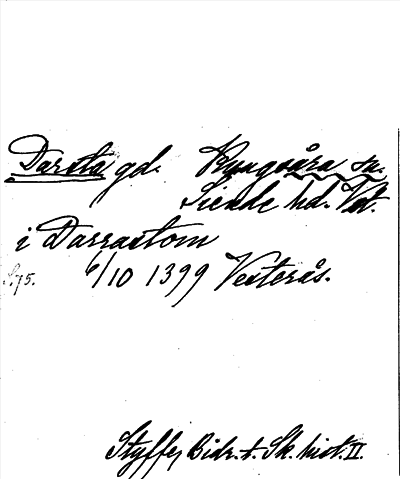 Darsta gd. Kungsåra sn.
Siende hd. Vstm.
i Darrastom
S. 75. 6/10 1399 Vesterås.
Styffe, Bidr. t. Sk. hist. II.